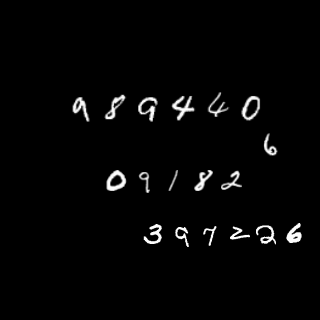 989440
6
09182
397226